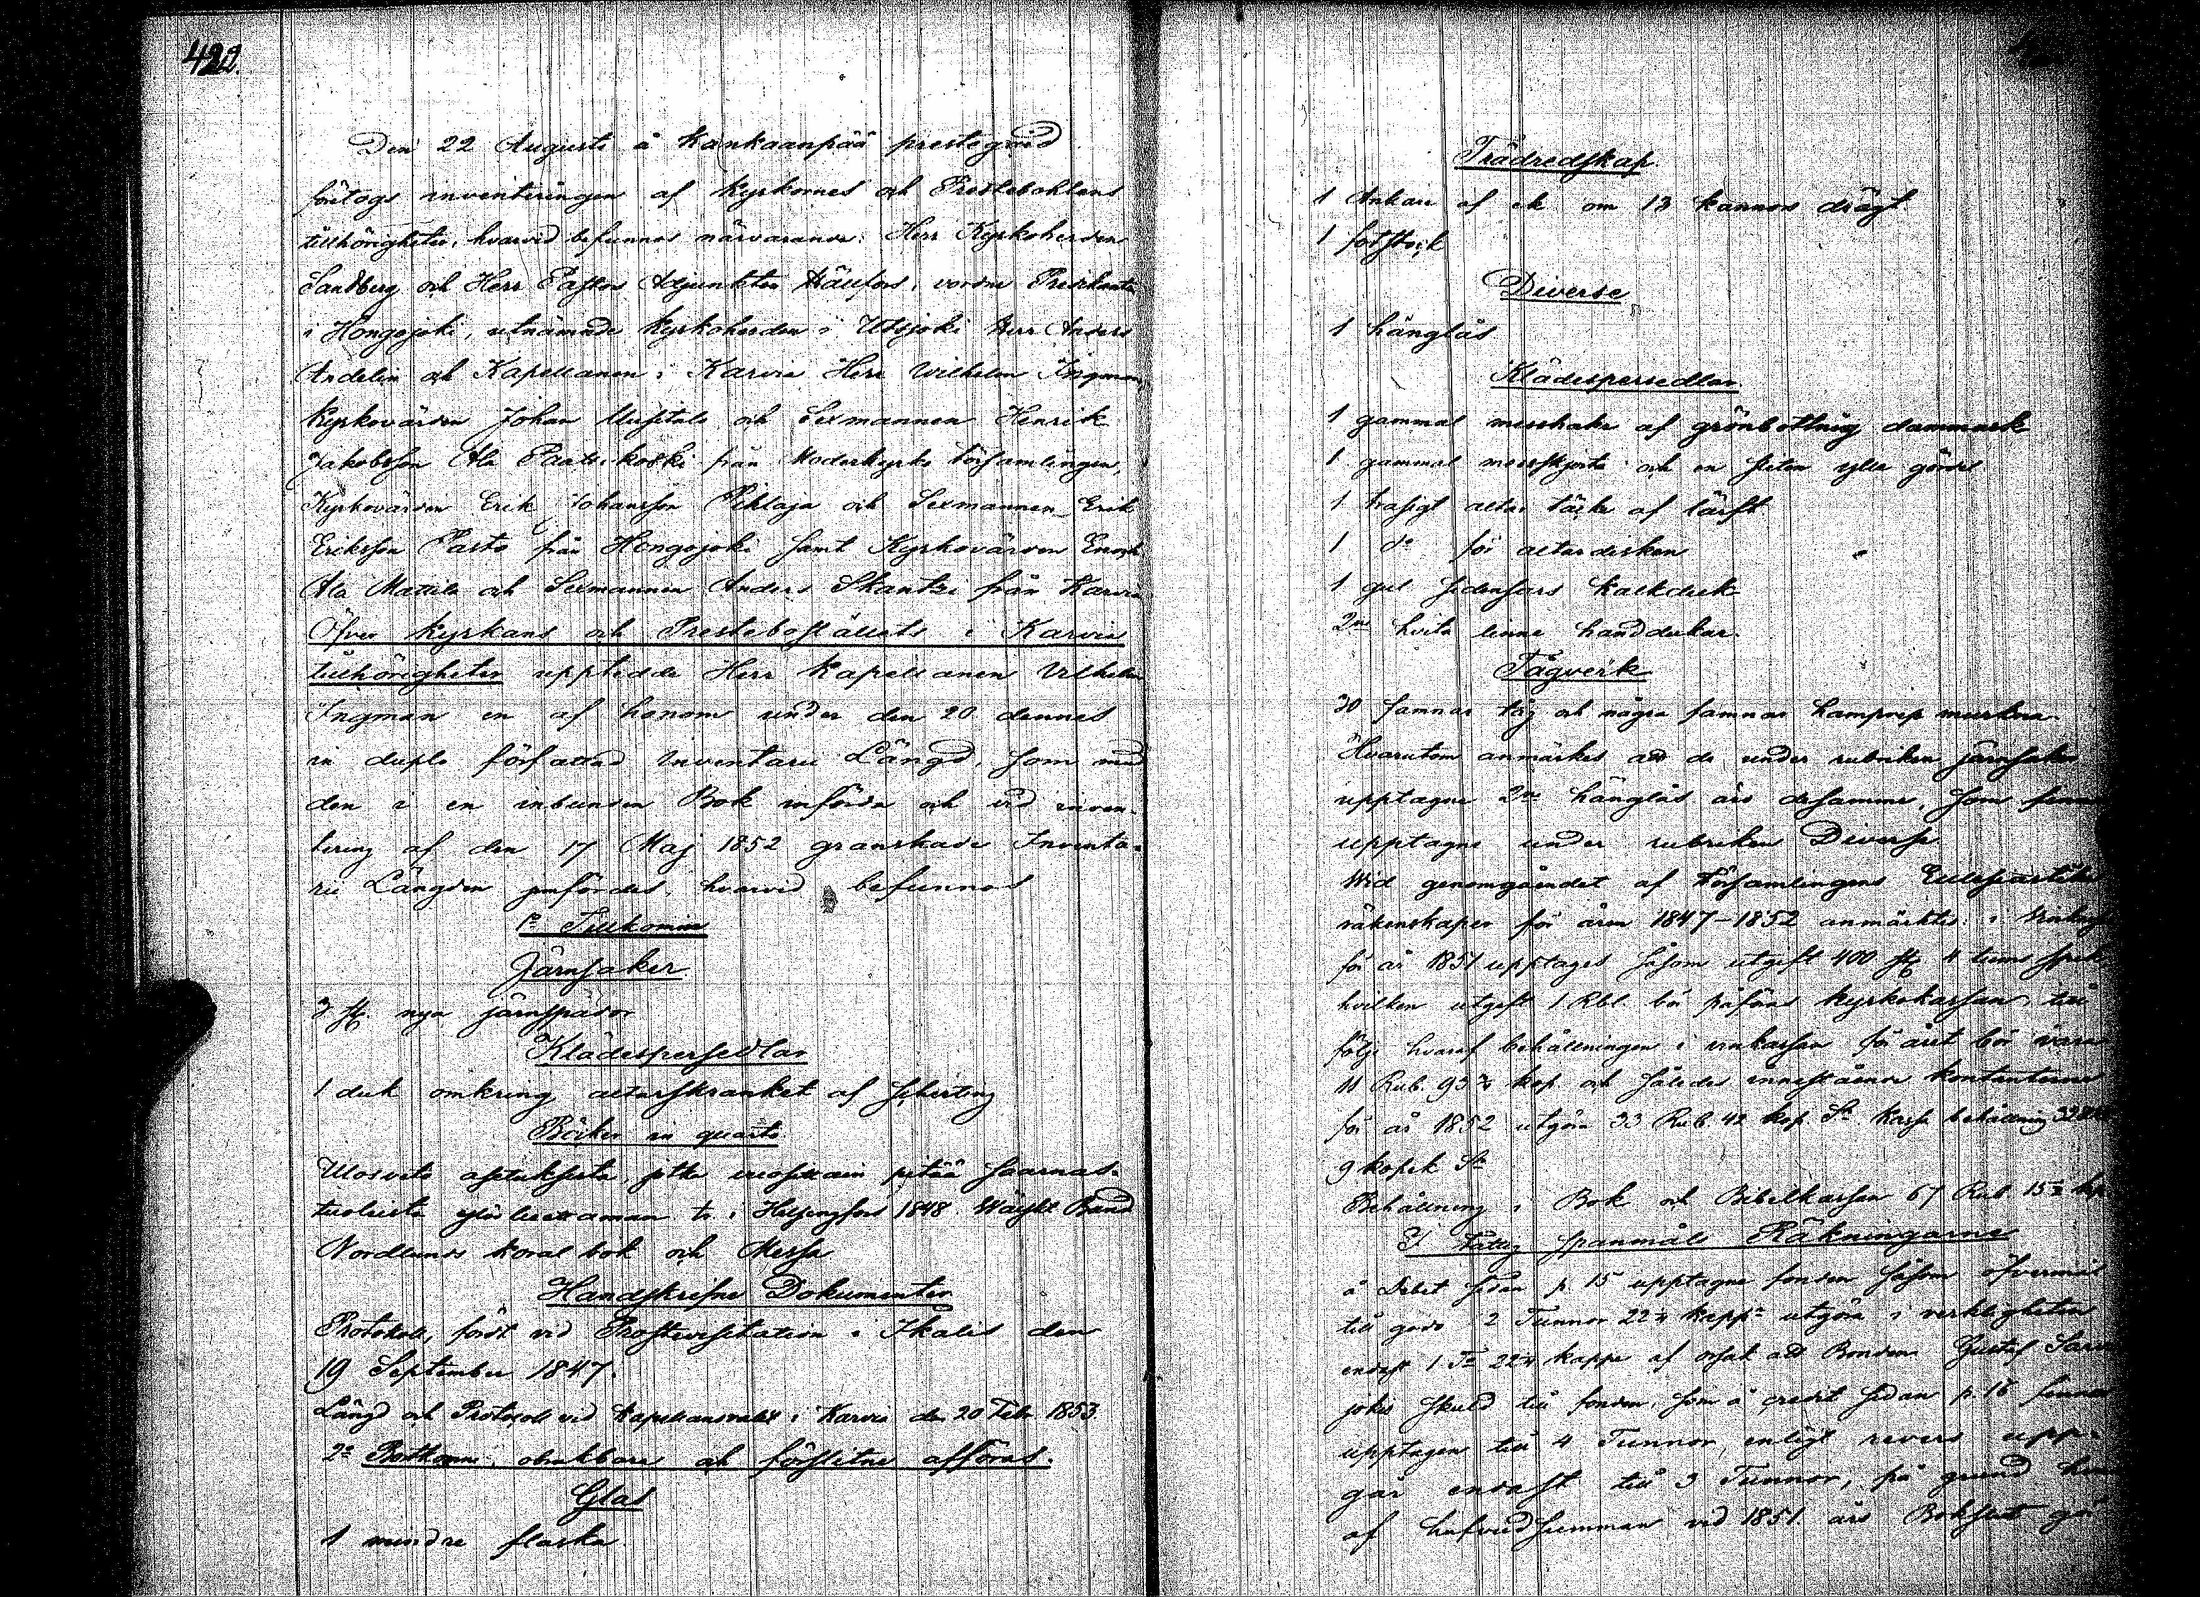 422.
Den 22 Augusti å Kankaanpää prestegård
företogs inventeringen af Kyrkornes och Prestebohlens
tillhörigheter, hvarvid befunnos närvarande: Herr Kyrkoherden
Sandberg och Herr Pastors Adjunkten Hällfors, vordne Predikanten
i Hongojoki, utnämnde Kyrkoherden i Utsjoki Herr Anders
Andelin och Kapellanen i Karvia Herr Wilhelm Ingman,
Kyrkovärden Johan Uusitalo och Sexmannen Henrik
Jakobsson Ala Paattikoski från Moderkyrko församlingen,
Kyrkovärden Erik Johansson Pihlaja och Sexmannen Erik
Eriksson Pasto från Hongojoki samt Kyrkovärden Enoch
Ala Mattila och Sexmannen Anders Skantzi från Karvia
Öfver Kyrkans och Presteboställets i Karvia
tillhörigheter upptedde Herr Kapellanen Vilhelm
Ingman en af honom under den 20 dennes
in duplo författad Inventarii Längd, som med
den i en inbunden Bok införda och vid inven-
tering af den 17 Maj 1852 granskade Inventa-
rii Längden jemfördes, hvarvid befunnos
1o Tillkomne
Järnsaker
3 st. nya järnspador
Klädespersedlar
1 duk omkring altarskranket af Schirting
Böcker in quarto
Uosvita asetuksesta, jotka pitää Saarnas-
tuolista tr. i Helsingfors 1848 Häft Band
Nordlunds Koral bok och Messa
Handskrifne Dokumenter
Protokoll, fördt vid Prostvisitation i Ikalis den
19 September 1847.
Längd och Protokoll vid Kapellansvalet i Karvia den 20 Febr 1853.
2o Bortkomne, obrukbara och förslitne afföras.
Glas
1 mindre flaska
Trädredskap.
1 Ankare af ek om 13 kannors drägt.
1 fotstock
Diverse
1 hänglås
Klädespersedlar.
1 gammal messhake af grönbottnig dammask
1 gammal messkjorta och en sliten ylle gördel
1 trasigt altar täcke af lärft
1 do för altardisken
1 gul sidensars Kalkduk
2ne hvita linne handdukar.
Tågverk
30 famnar tåg och några famnar hamprep murkna.
Hvarutom anmärkes att de under rubriken järnsaker
upptagne 2ne hänglås äro desamma, som finnas
upptagne under rubriken Diverse.
Wid genomgåendet af Församlingens
räkenskaper för åren 1847-1852 anmärktes: i
för år 1851 upptages såsom utgift 400 st 4 tums spik
hvilken utgift 1 Rbl. bör påföras Kyrkokassan, till
följe hvaraf behållningen i vinkassan för året bör vara
11 Rub. 93 kop. och således innestående kontanterne
för år 1852 utgöra 33 Rub. 42 kop. Sr. Kassa behållning 32
9 kopek Sr
Behållning i Bok och Bibelkassan 67 Rub 15 kop
I Fattig Spanmåls Räkningarne
å Debet sidan p. 15 upptagne fonden såsom öfvermål
till godo 2 Tunnor 22 kappr utgöra i verkligheten
endast 1 Ta 22 kappe af orsak att Bonden Gustaf
jokis skuld till fonden, som å credit sidan p. 16 finnes
upptagen till 4 Tunnor, enligt revers upp-
går endast till 3 Tunnor, på grund
af hufvudsumman vid 1851 års Bokslut